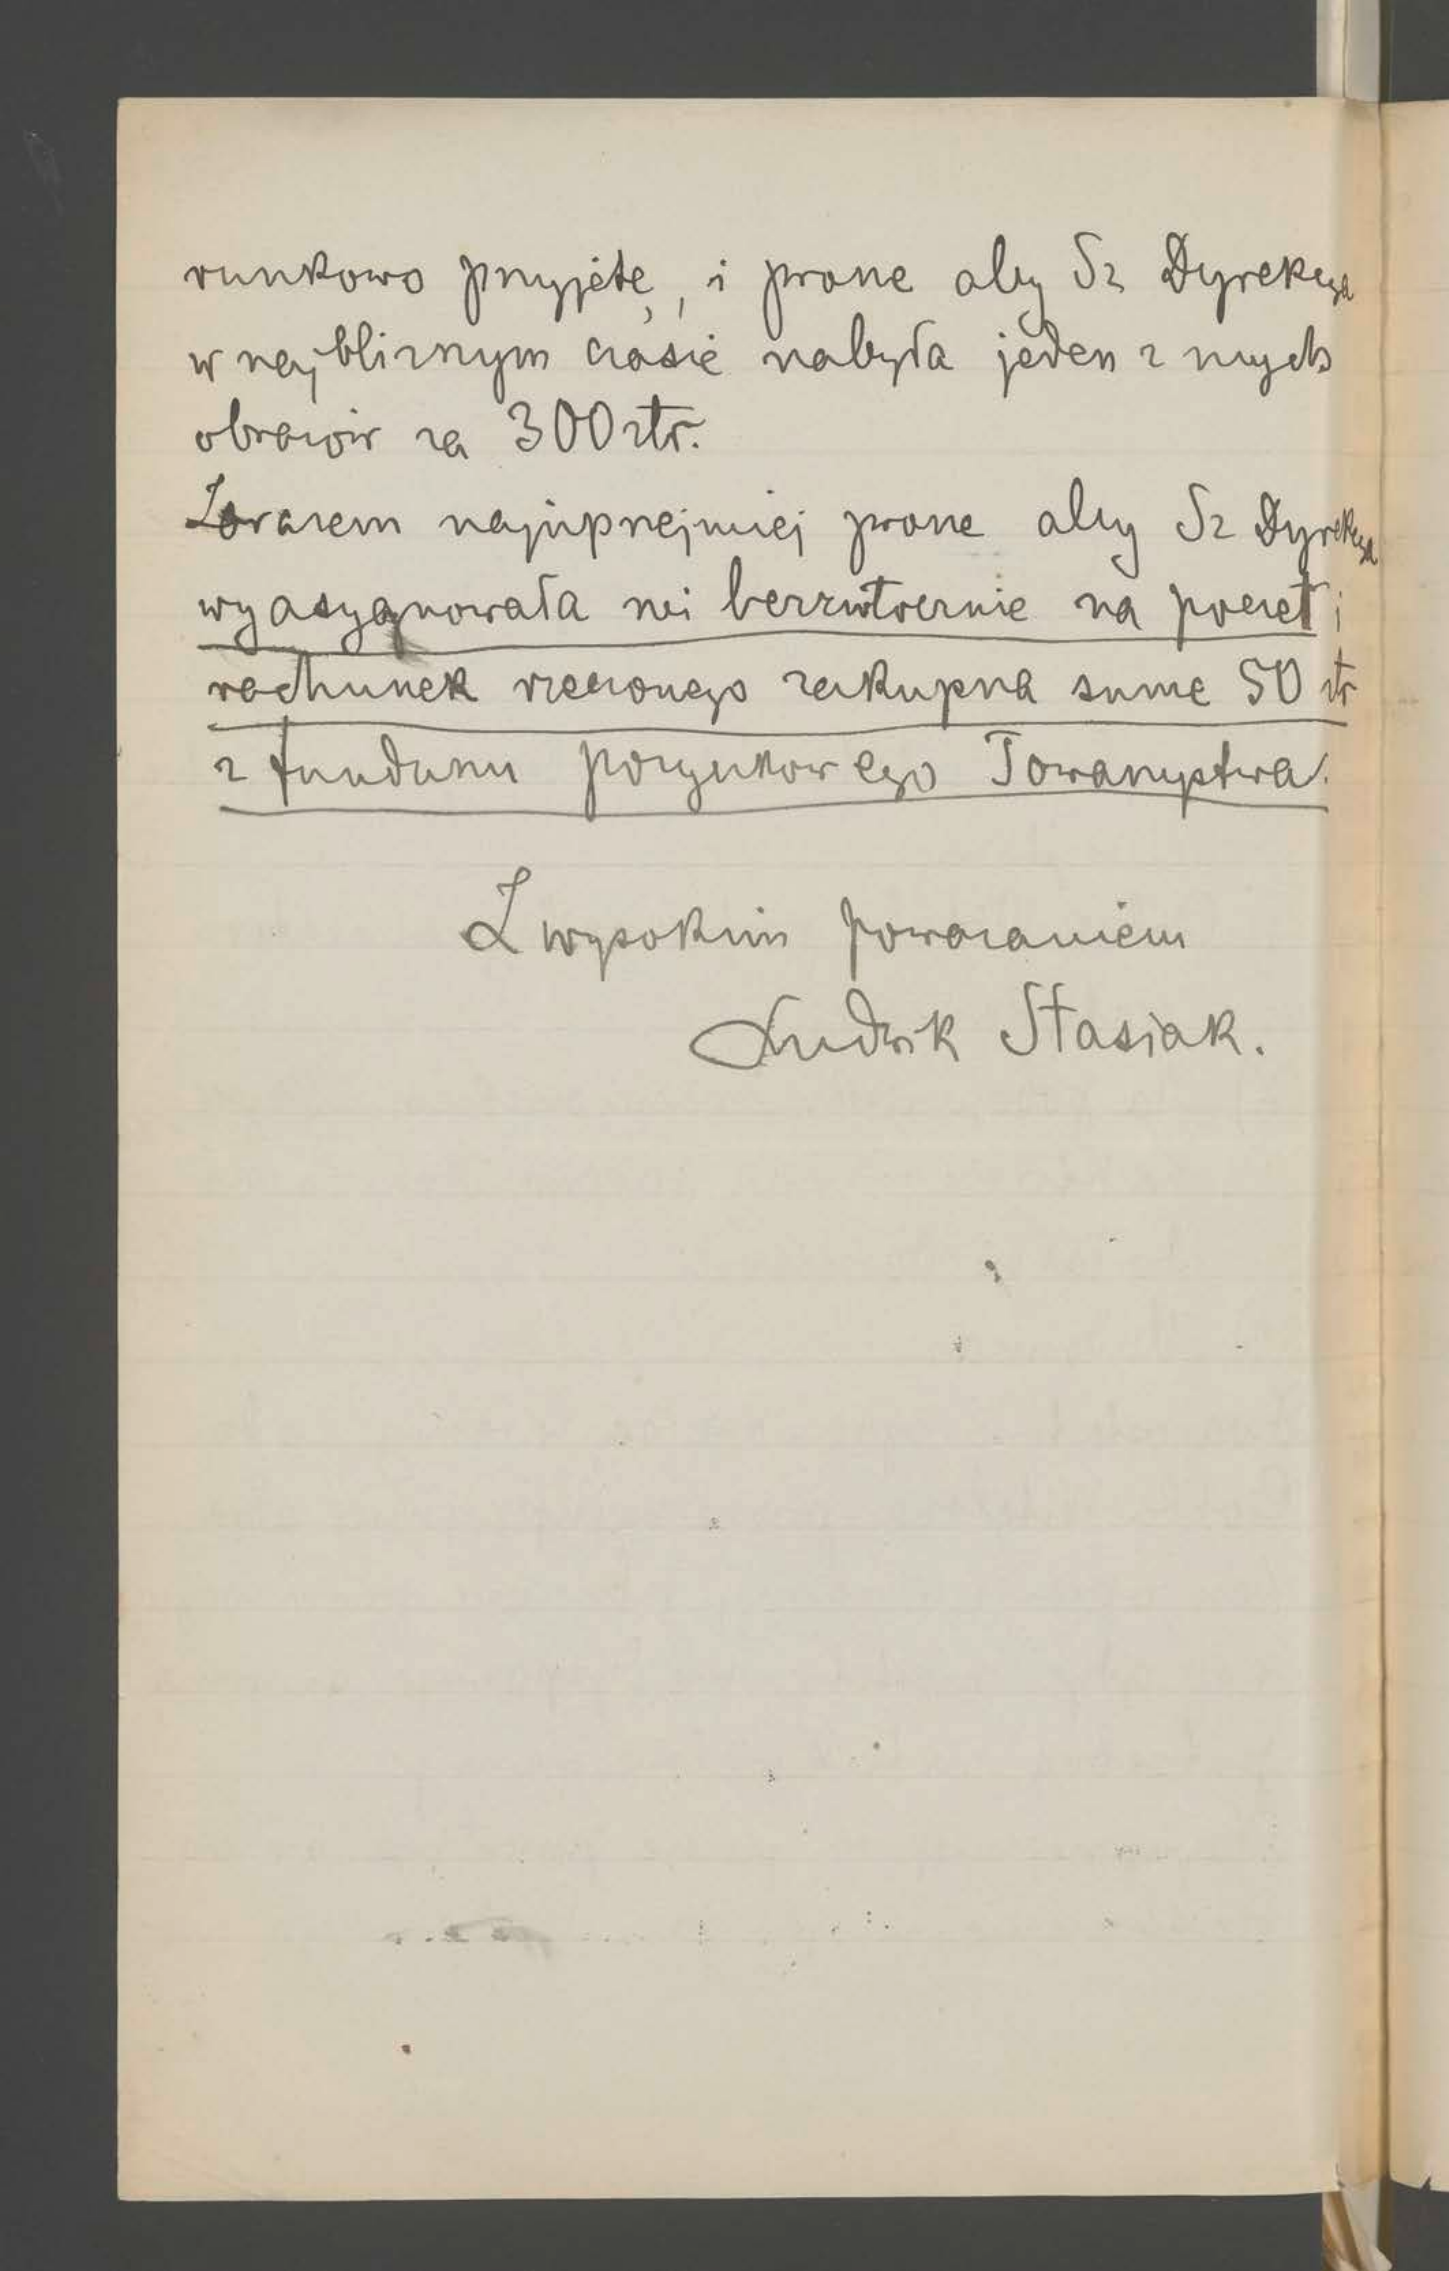 runkowo przyjętę, i proszę aby Sz Dyrekcya
w najbliższym czasie nabyła jeden z mych
obrazów za 300 złr.
Zarazem najuprzejmiej proszę aby Sz Dyrekcya
wyasygnowała mi bezzwłocznie na poczet i
rachunek rzeczonego zakupna sumę 50 złr
z funduszu pożyczkowego Towarzystwa.
Z wysokim poważaniem
Ludwik Stasiak.